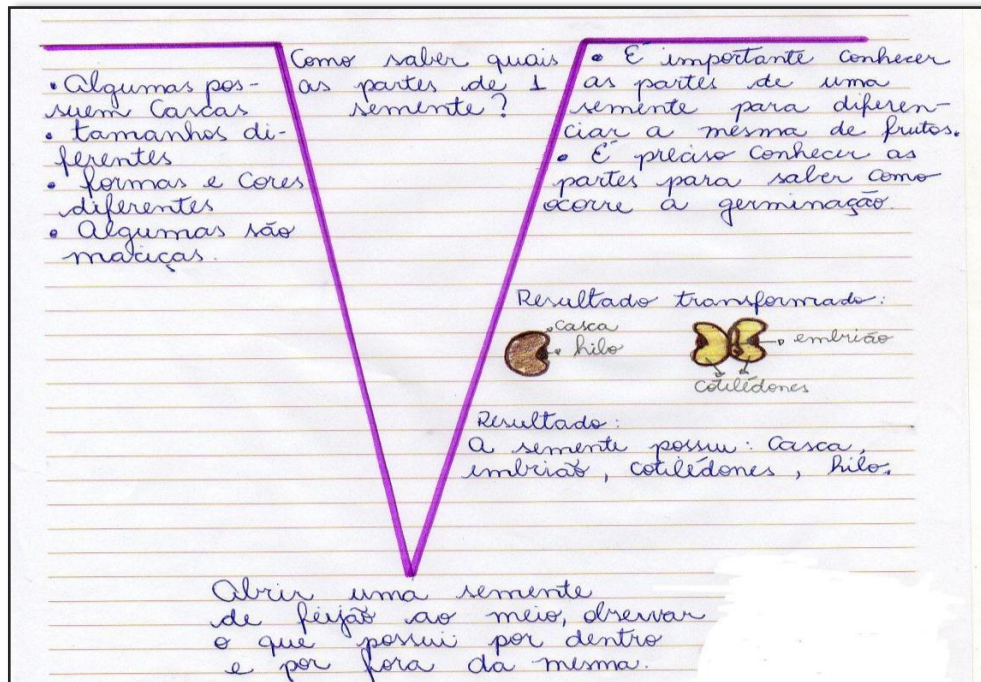 • Algumas pos-
suem cascas
• tamanhos di-
ferentes
• formas e cores
diferentes
• Algumas são
maciças.
Como saber quais
as partes de 1
semente?
• É importante conhecer
as partes de uma
semente para diferen-
ciar a mesma de frutos.
• É preciso conhecer as
partes para saber como
ocorre a germinação.
Resultado transformado:
casca
hilo
embrião
cotilédones
Resultado:
A semente possui: casca,
embrião, cotilédones, hilo.
Abrir uma semente
de feijão ao meio, observar
o que possui por dentro
e por fora da mesma.